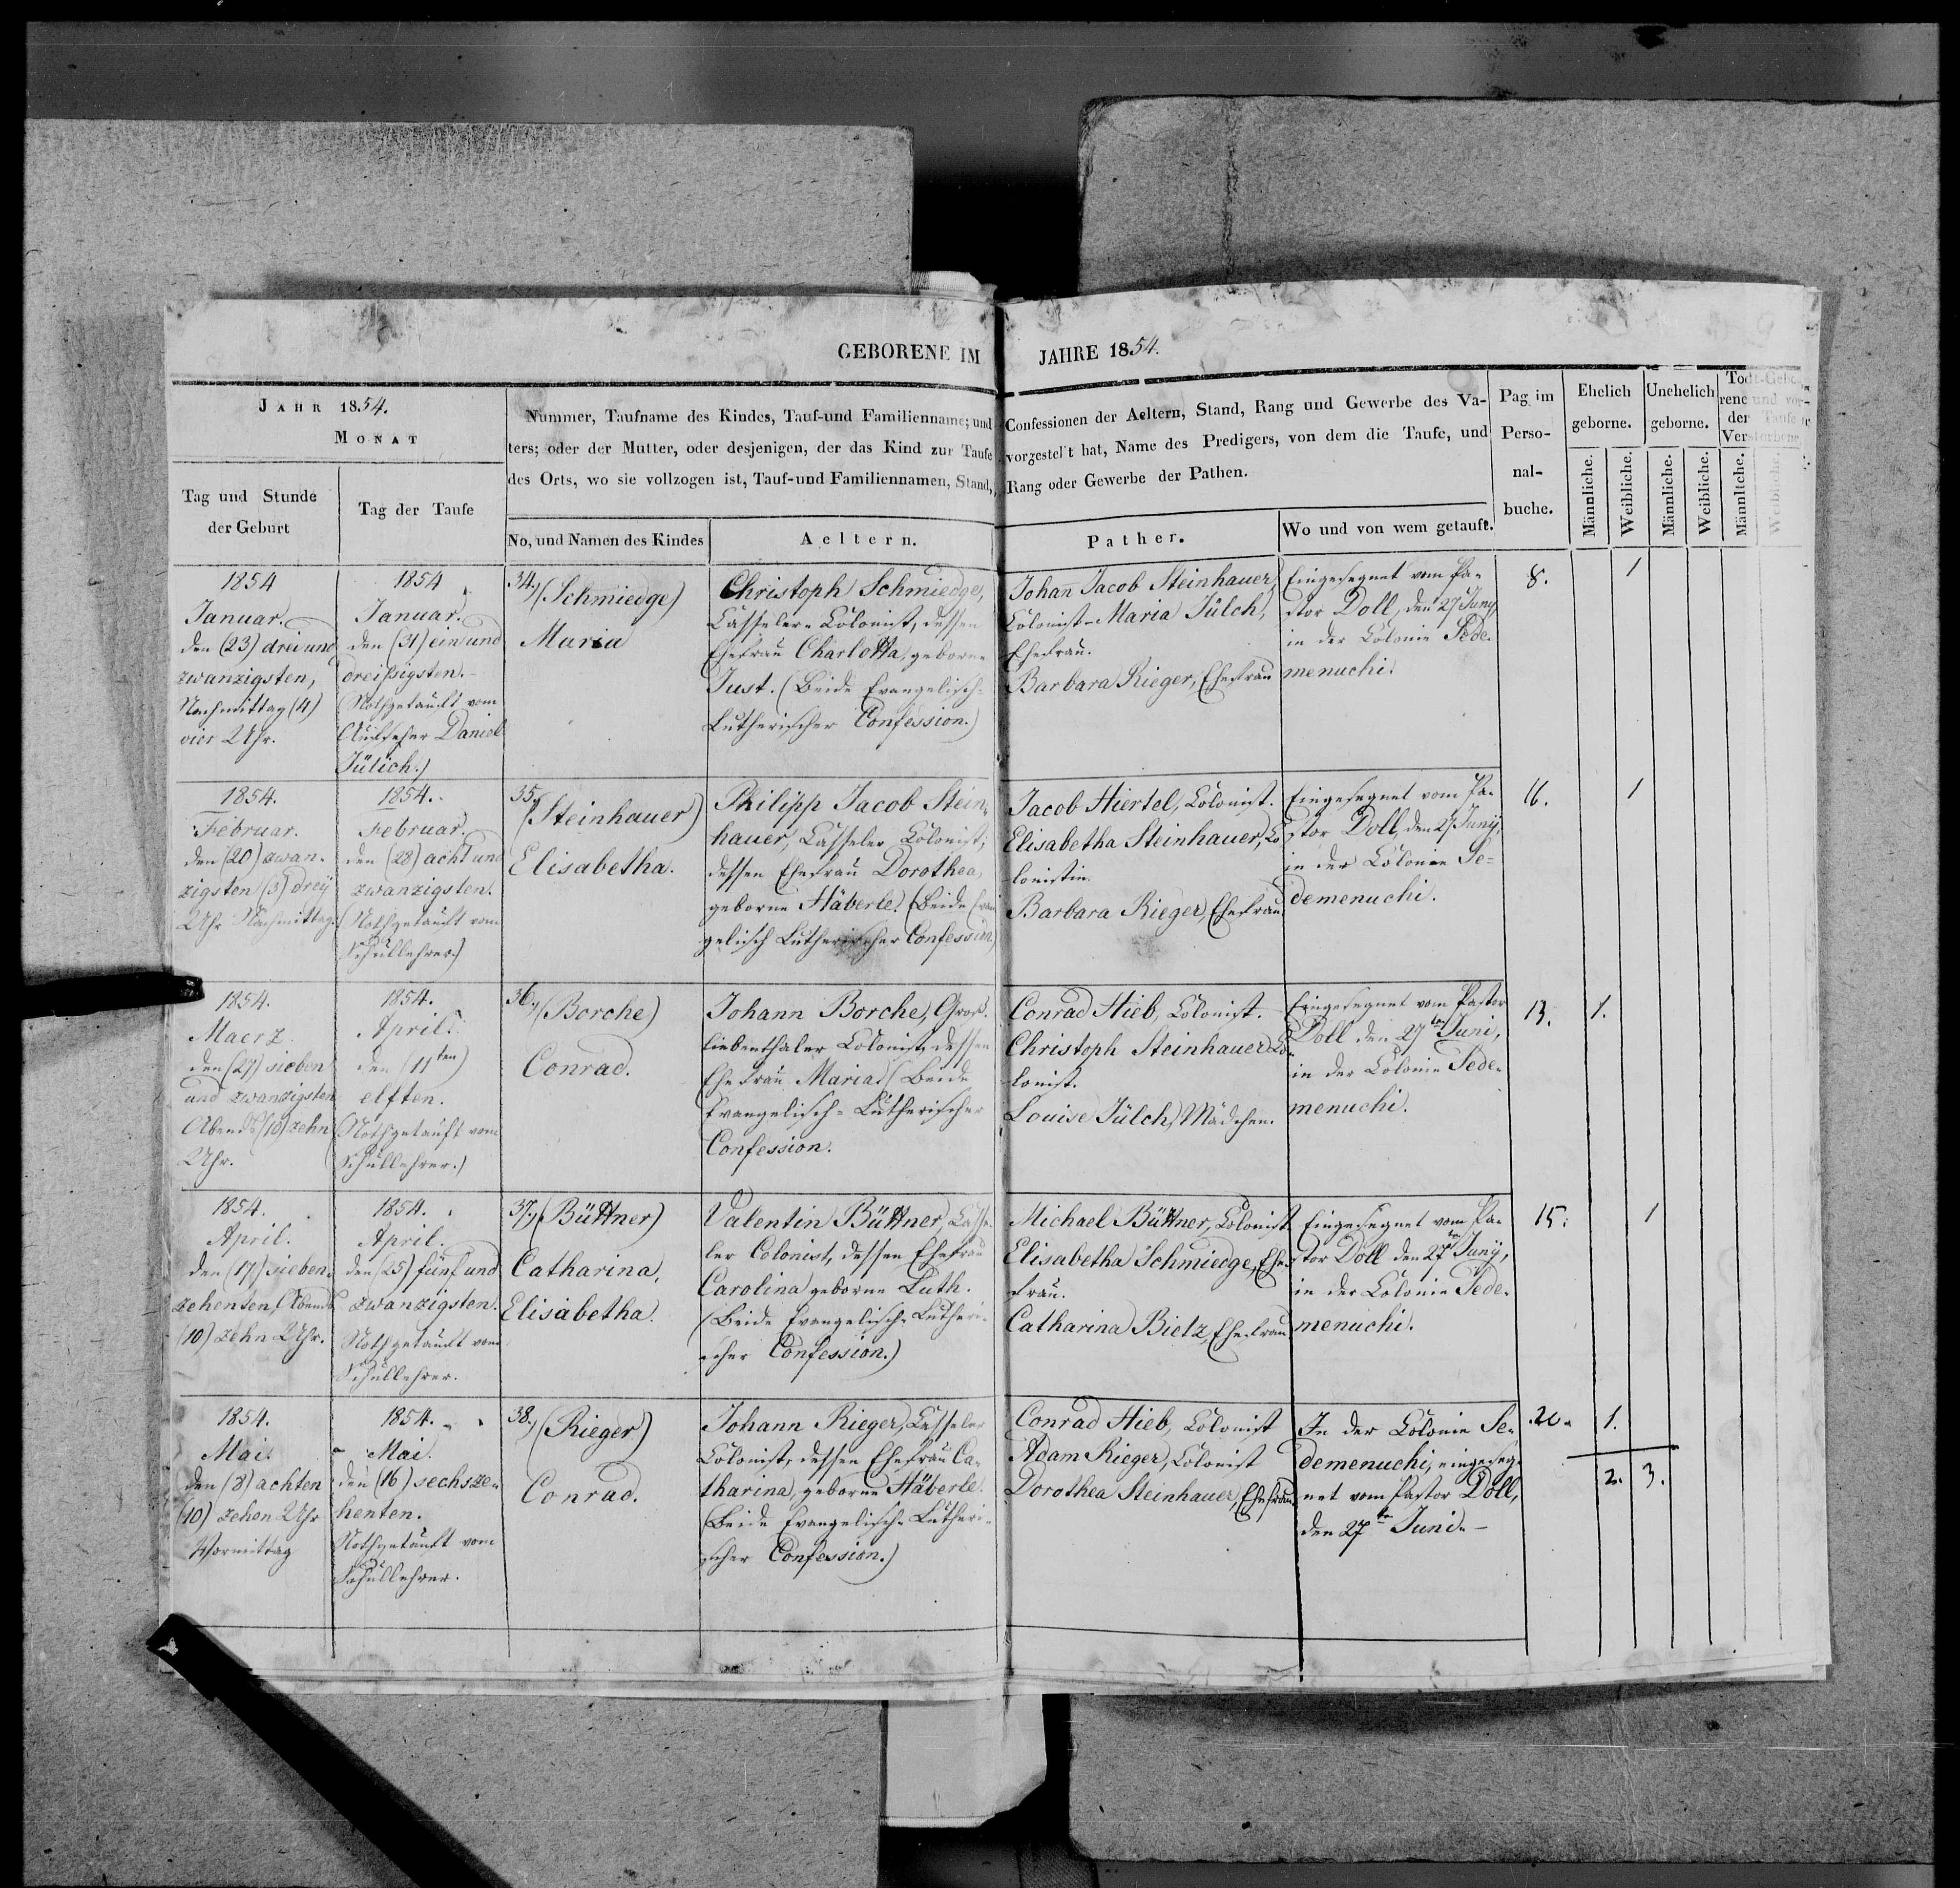 GEBORENE IM JAHRE 1854.
JAHR 1854.
MONAT
Tag und Stunde
der Geburt
Tag der Taufe
Nummer, Taufname des Kindes, Tauf-und Familienname; und Confessionen der Aeltern, Stand, Rang und Gewerbe des Va-
ters; oder der Mutter, oder desjenigen, der das Kind zur Taufe vorgestellt hat, Name des Predigers, von dem die Taufe, und
des Orts, wo sie vollzogen ist, Tauf-und Familiennamen, Stand, Rang oder Gewerbe der Pathen.
No, und Namen des Kindes
Aeltern.
Pather.
Wo und von wem getauft.
Pag im
Perso-
nal-
buche.
Ehelich
geborne.
Unehelich
geborne.
Todt-Gebo-
rene und vor
der Taufe
Verstorbene
Männliche.
Weibliche.
Männliche.
Weibliche.
Männltche.
Weibliche.
1854
Januar.
den (23) drei und
zwanzigsten,
Nachmittag (4)
vier Uhr.
1854
Januar.
den (31) ein und
dreißigsten.-
(Nothgetauft vom
Aufseher Daniel
Jülich.)
34.) (Schmiedge)
Maria
Christoph Schmiedge,
Casseler-Colonist, dessen
Ehefrau Charlotta, geborne
Just. (Beide Evangelisch-
Lutherischer Confession.)
Johan Jacob Steinhauer,
Colonist-Maria Jülch,
Ehefrau.
Barbara Rieger, Ehefrau
Eingesegnet vom Pa-
stor Doll, den 27 Juny
in der Colonie Sede-
menuchi.
8.
1
1854.
Februar.
den (20) zwan-
zigsten (3) drey
Uhr Nachmittag.
1854.
Februar.
den (28) acht und
zwanzigsten.
(Nothgetauft vom
Schullehrer.)
35.) (Steinhauer)
Elisabetha.
Philipp Jacob Stein-
hauer, Casseler Colonist,
dessen Ehefrau Dorothea,
geborne Häberle. (Beide Evan
gelisch Lutherischer Confession)
Jacob Hiertel, Colonist.
Elisabetha Steinhauer, Co
lonistin.
Barbara Rieger, Ehefrau
Eingesegnet vom Pa-
stor Doll, den 27 Juny,
in der Colonie Se-
demenuchi.
16.
1
1854.
Maerz
den (27) sieben
und zwanzigsten
Abends (10) zehn
Uhr.
1854.
April.
den (11ten)
elften.
(Nothgetauft vom
Schullehrer.)
36.) (Borche)
Conrad.
Johann Borche, Groß-
liebenthaler Colonist, dessen
Ehefrau Maria. (Beide
Evangelisch-Lutherischer
Confession.
Conrad Hieb, Colonist.
Christoph Steinhauer Co-
lonist.
Louise Jülch, Mädchen.
Eingesegnet vom Pastor
Doll den 27ten Juni,
in der Colonie Sede-
menuchi.
13.
1.
1854.
April.
den (17) sieben-
zehenten, Abends
(10) zehn Uhr.
1854.
April.
den (25) fünf und
zwanzigsten.
Nothgetauft vom
Schullehrer.
37.) (Büttner)
Catharina,
Elisabetha.
Valentin Büttner, Casse-
ler Colonist, dessen Ehefrau
Carolina geborne Luth.
(Beide Evangelisch-Lutheri-
scher Confession.)
Michael Büttner, Colonist
Elisabetha Schmiedge, Ehe-
frau.
Catharina Bietz, Ehefrau
Eingesegnet vom Pa-
stor Doll den 27ten Juny,
in der Colonie Sede-
menuchi.
15.
1
1854.
Mai.
den (8) achten
(10) zehen Uhr
Vormittag
1854.
Mai.
den (16) sechsze-
henten.
Nothgetauft vom
Schullehrer.
38.) (Rieger)
Conrad.
Johann Rieger, Casseler
Colonist, dessen Ehefrau Ca-
tharina, geborne Häberle.
(Beide Evangelisch-Lutheri-
scher Confession.)
Conrad Hieb, Colonist
Adam Rieger, Colonist
Dorothea Steinhauer, Ehefrau
In der Colonie Se-
demenuchi, eingeseg-
net vom Pastor Doll,
den 27ten Juni.-
1.
2. 3.